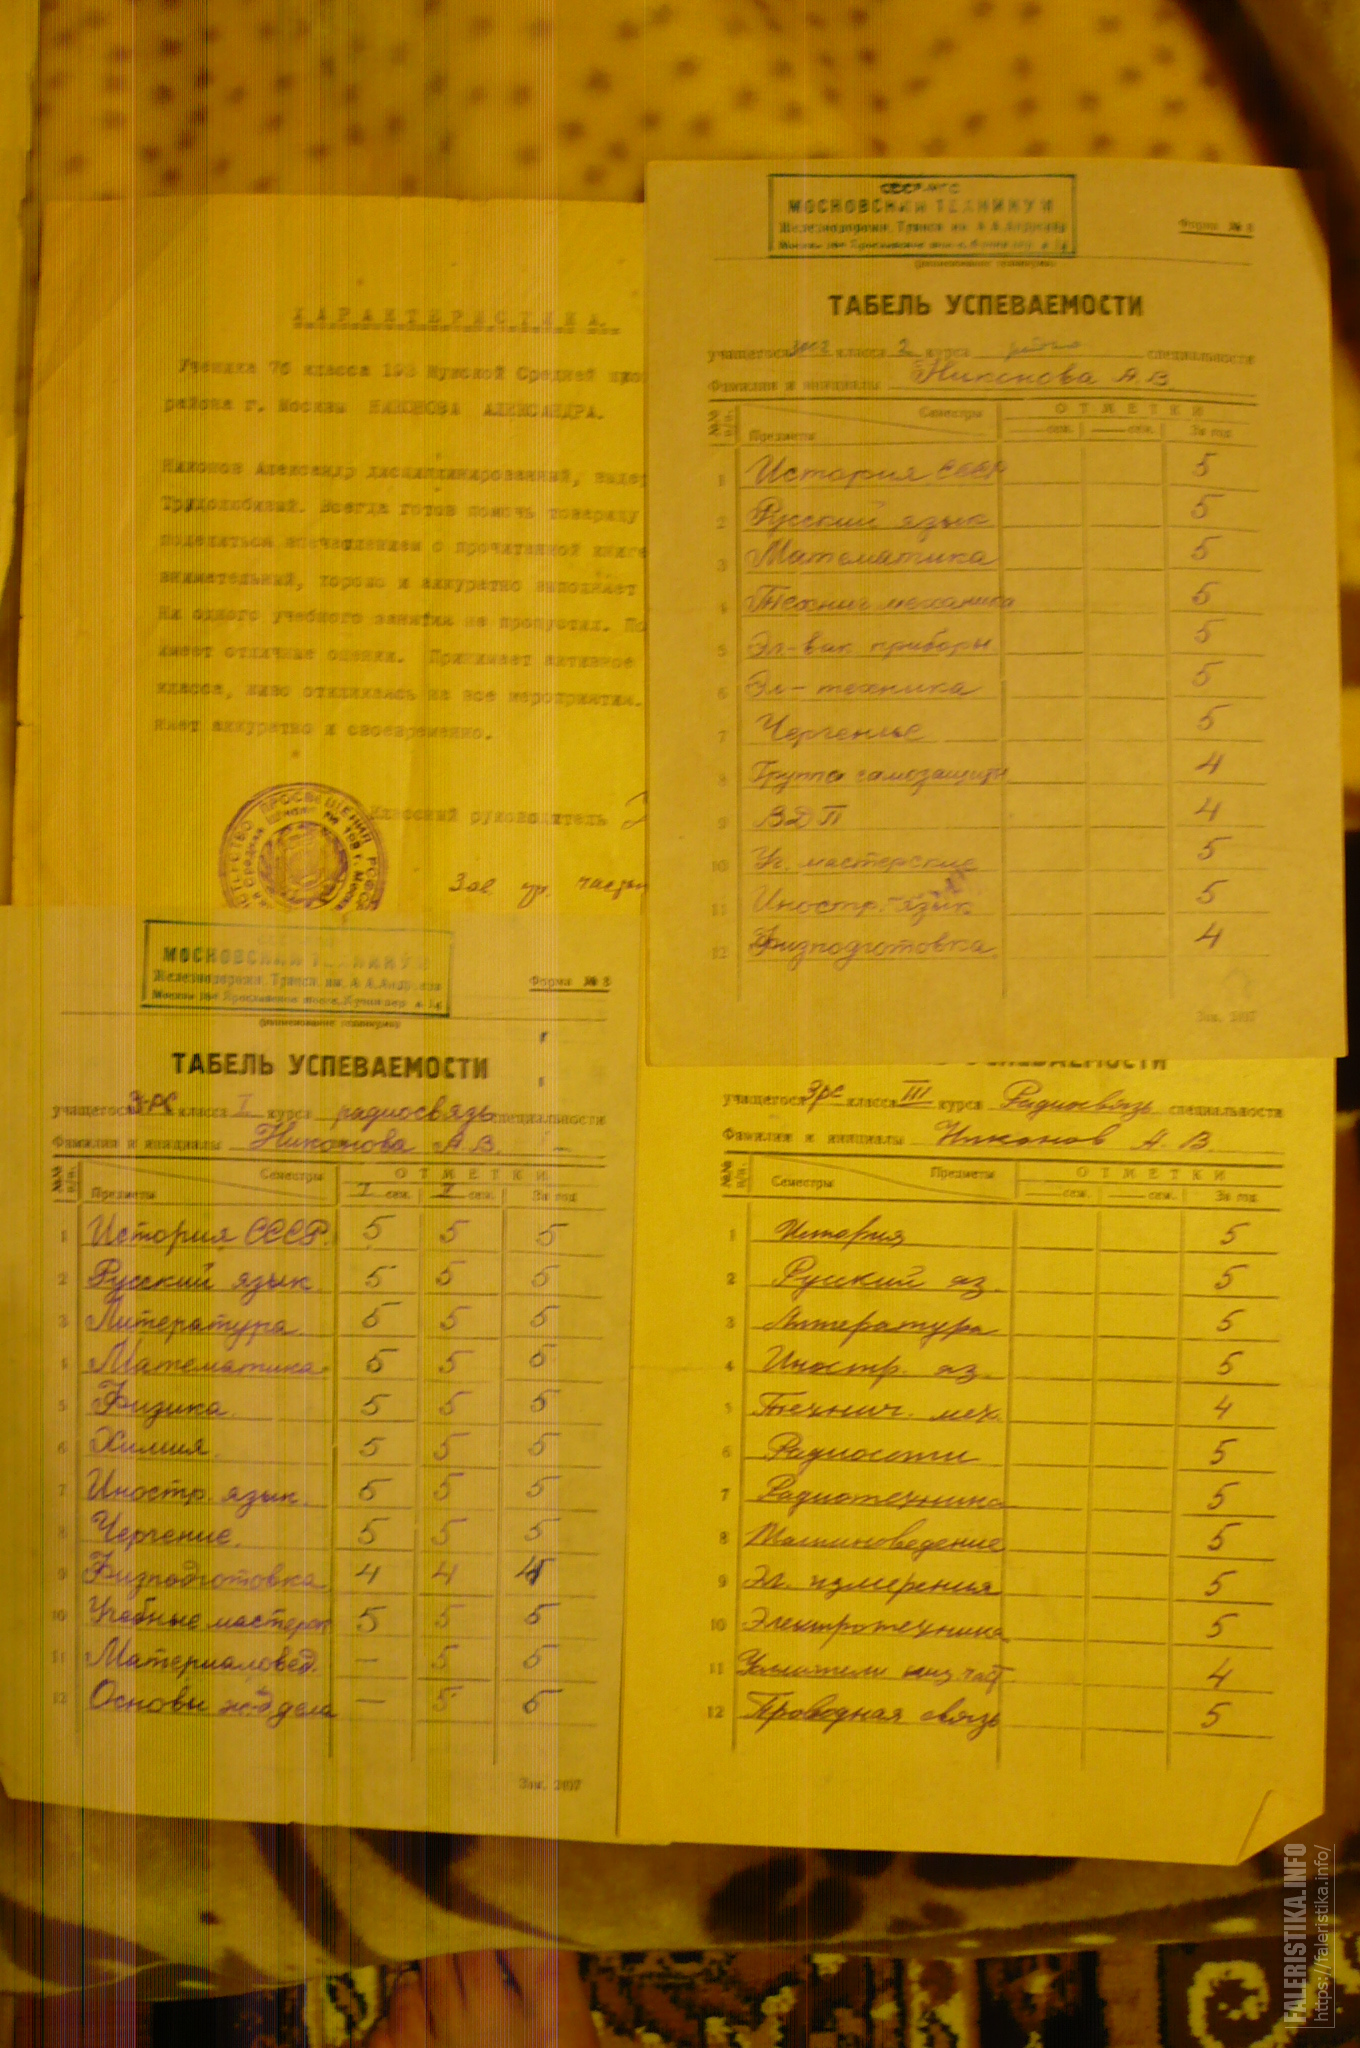 ХАРАКТЕРИСТИКА.
Ученика 7б класса 193 Мужской Средней
района г. Москвы НИКОНОВА АЛЕКСАНДРА.
Никонов Александр дисциплинированный,
Трудолюбивый. Всегда готов помочь товарищу
поделиться впечатлением о прочитанной книге
внимательный, хорошо и аккуратно выполняет
Ни одного учебного занятия не пропустил.
имеет отличные оценки. Принимает активное
класса, живо откликаясь на все мероприятия.
аккуратно и своевременно.
Классный руководитель
Зав. уч. частью
МОСКОВСКИЙ ТЕХНИКУМ
Железнодорожн. Трансп. им. А. А. Андреева
Форма № 8
ТАБЕЛЬ УСПЕВАЕМОСТИ
учащегося класса 2 курса специальности
Фамилия и инициалы Никонова А.В.
№№ п/п. Предметы Семестры ОТМЕТКИ
сем. сем. За год
1 История СССР 5
2 Русский язык 5
3 Математика 5
4 Технич механика 5
5 Эл-вак приборы 5
6 Эл-техника 5
7 Черчение 5
8 Группа самозащиты 4
9 ВДП 4
10 Уч. мастерские 5
11 Иностр. язык 5
12 Физподготовка. 4
Зак. 2097
МОСКОВСКИЙ ТЕХНИКУМ
Железнодорожн. Трансп. им. А. А. Андреева
Форма № 8
(наименование техникума)
ТАБЕЛЬ УСПЕВАЕМОСТИ
учащегося 3-РС класса I курса радиосвязь специальности
Фамилия и инициалы Никонова А.В.
№№ п/п. Предметы Семестры ОТМЕТКИ
I сем. сем. За год
1 История СССР. 5 5 5
2 Русский язык. 5 5 5
3 Литература. 5 5 5
4 Математика. 5 5 5
5 Физика. 5 5 5
6 Химия. 5 5 5
7 Иностр. язык. 5 5 5
8 Черчение. 5 5 5
9 Физподготовка 4 4 4
10 Учебные мастерск 5 5 5
11 Материаловед. — 5 5
12 Основы ж-д дела — 5 5
Зак. 2097
УСПЕВАЕМОСТИ
учащегося 3рс класса III курса Радиосвязь специальности
Фамилия и инициалы Никонов А. В.
№№ п/п. Семестры Предметы ОТМЕТКИ
сем. сем. За год
1 История 5
2 Русский яз. 5
3 Литература 5
4 Иностр. яз. 5
5 Технич. мех. 4
6 Радиосети 5
7 Радиотехника 5
8 Машиноведение 5
9 Эл. измерения 5
10 Электротехника 5
11 Усилители низ част. 4
12 Проводная связь 5
FALERISTIKA.INFO
https://faleristika.info/